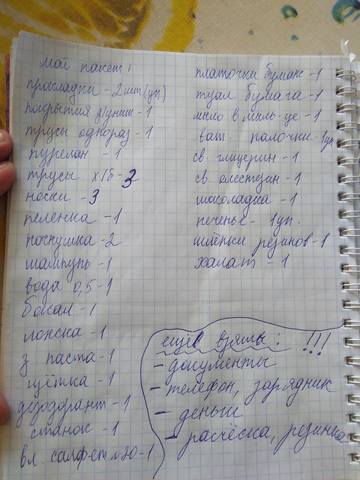 мой пакет:
прокладки - 2шт (уп)
покрытия д/унит - 1
трусы однораз - 1
пурелан - 1
трусы х/б - 3
носки - 3
пеленка - 1
ночнушка - 2
шампунь - 1
вода 0,5 - 1
бокал - 1
ложка - 1
з паста - 1
щётка - 1
дезодорант - 1
станок - 1
вл. салфет №20 - 1
платочки бумаж - 1
туал бумага - 1
мыло в мыль-це - 1
ват палочки 1уп
св глицерин - 1
св
шоколадка - 1
печенье - 1уп.
шлёпки резинов - 1
халат - 1
ещё взять: !!!
- документы
- телефон, зарядник
- деньги
- расчёска, резинка